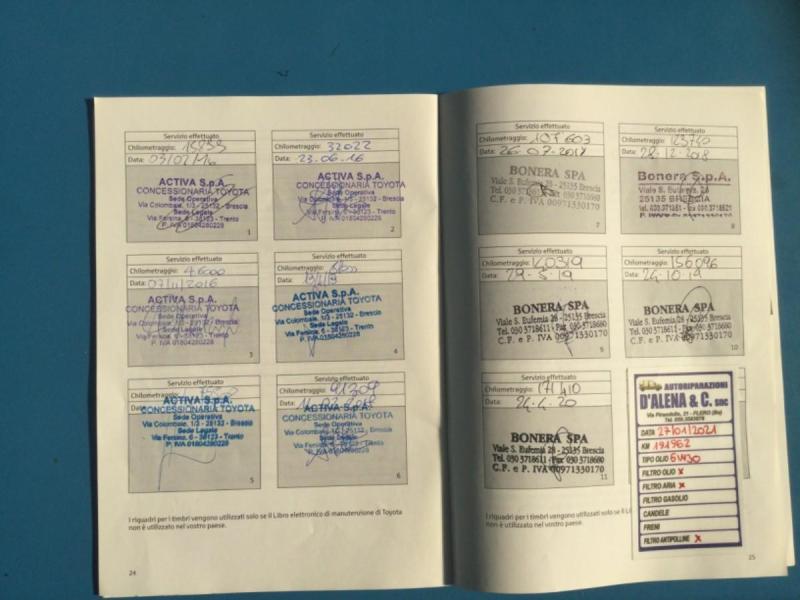 Servizio effettuato
Chilometraggio: 15853
Data: 03/02/16
ACTIVA S.p.A.
CONCESSIONARIA TOYOTA
Sede Operativa
Via Colombaie, 1/3 - 25132 - Brescia
Sede Legale
Via Fersina, 6 - 38123 - Trento
P. IVA 01804280228
1
Servizio effettuato
Chilometraggio: 32022
Data: 23.06.16
ACTIVA S.p.A.
CONCESSIONARIA TOYOTA
Sede Operativa
Via Colombaie, 1/3 - 25132 - Brescia
Sede Legale
Via Fersina, 6 - 38123 - Trento
P. IVA 01804280228
2
Servizio effettuato
Chilometraggio: 46000
Data: 07/11/2016
ACTIVA S.p.A.
CONCESSIONARIA TOYOTA
Sede Operativa
Via Colombaie, 1/3 - 25132 - Brescia
Sede Legale
Via Fersina, 6 - 38123 - Trento
P. IVA 01804280228
3
Servizio effettuato
Chilometraggio:
Data:
ACTIVA S.p.A.
CONCESSIONARIA TOYOTA
Sede Operativa
Via Colombaie, 1/3 - 25132 - Brescia
Sede Legale
Via Fersina, 6 - 38123 - Trento
P. IVA 01804280228
4
Servizio effettuato
Chilometraggio:
Data:
ACTIVA S.p.A.
CONCESSIONARIA TOYOTA
Sede Operativa
Via Colombaie, 1/3 - 25132 - Brescia
Sede Legale
Via Fersina, 6 - 38123 - Trento
P. IVA 01804280228
5
Servizio effettuato
Chilometraggio: 91209
Data:
ACTIVA S.p.A.
CONCESSIONARIA TOYOTA
Sede Operativa
Via Colombaie, 1/3 - 25132 - Brescia
Sede Legale
Via Fersina, 6 - 38123 - Trento
P. IVA 01804280228
6
I riquadri per i timbri vengono utilizzati solo se il Libro elettronico di manutenzione di Toyota
non è utilizzato nel vostro paese.
24
Servizio effettuato
Chilometraggio: 107603
Data: 26-07-2018
BONERA SPA
Viale S. Eufemia 28 - 25135 Brescia
Tel. 030 3718611 - Fax 030 3718680
C.F. e P. IVA 00971330170
7
Servizio effettuato
Chilometraggio: 123740
Data: 28-12-2018
Bonera S.p.A.
Viale S. Eufemia, 28
25135 BRESCIA
8
Servizio effettuato
Chilometraggio: 140319
Data: 29-5-19
BONERA SPA
Viale S. Eufemia 28 - 25135 Brescia
Tel. 030 3718611 - Fax 030 3718680
C.F. e P. IVA 00971330170
9
Servizio effettuato
Chilometraggio: 156096
Data: 24.10.19
BONERA SPA
Viale S. Eufemia 28 - 25135 Brescia
Tel. 030 3718611 - Fax 030 3718680
C.F. e P. IVA 00971330170
10
Servizio effettuato
Chilometraggio: 171410
Data: 24.4.20
BONERA SPA
Viale S. Eufemia 28 - 25135 Brescia
Tel. 030 3718611 - Fax 030 3718680
C.F. e P. IVA 00971330170
11
AUTORIPARAZIONI
D'ALENA & C. snc
Via Pirandello, 21 - FLERO (Bs)
DATA 27/01/2021
KM 191962
TIPO OLIO 5W30
FILTRO OLIO X
FILTRO ARIA X
FILTRO GASOLIO
CANDELE
FRENI
FILTRO ANTIPOLLINE X
I riquadri per i timbri vengono utilizzati solo se il
non è utilizzato nel vostro paese.
25